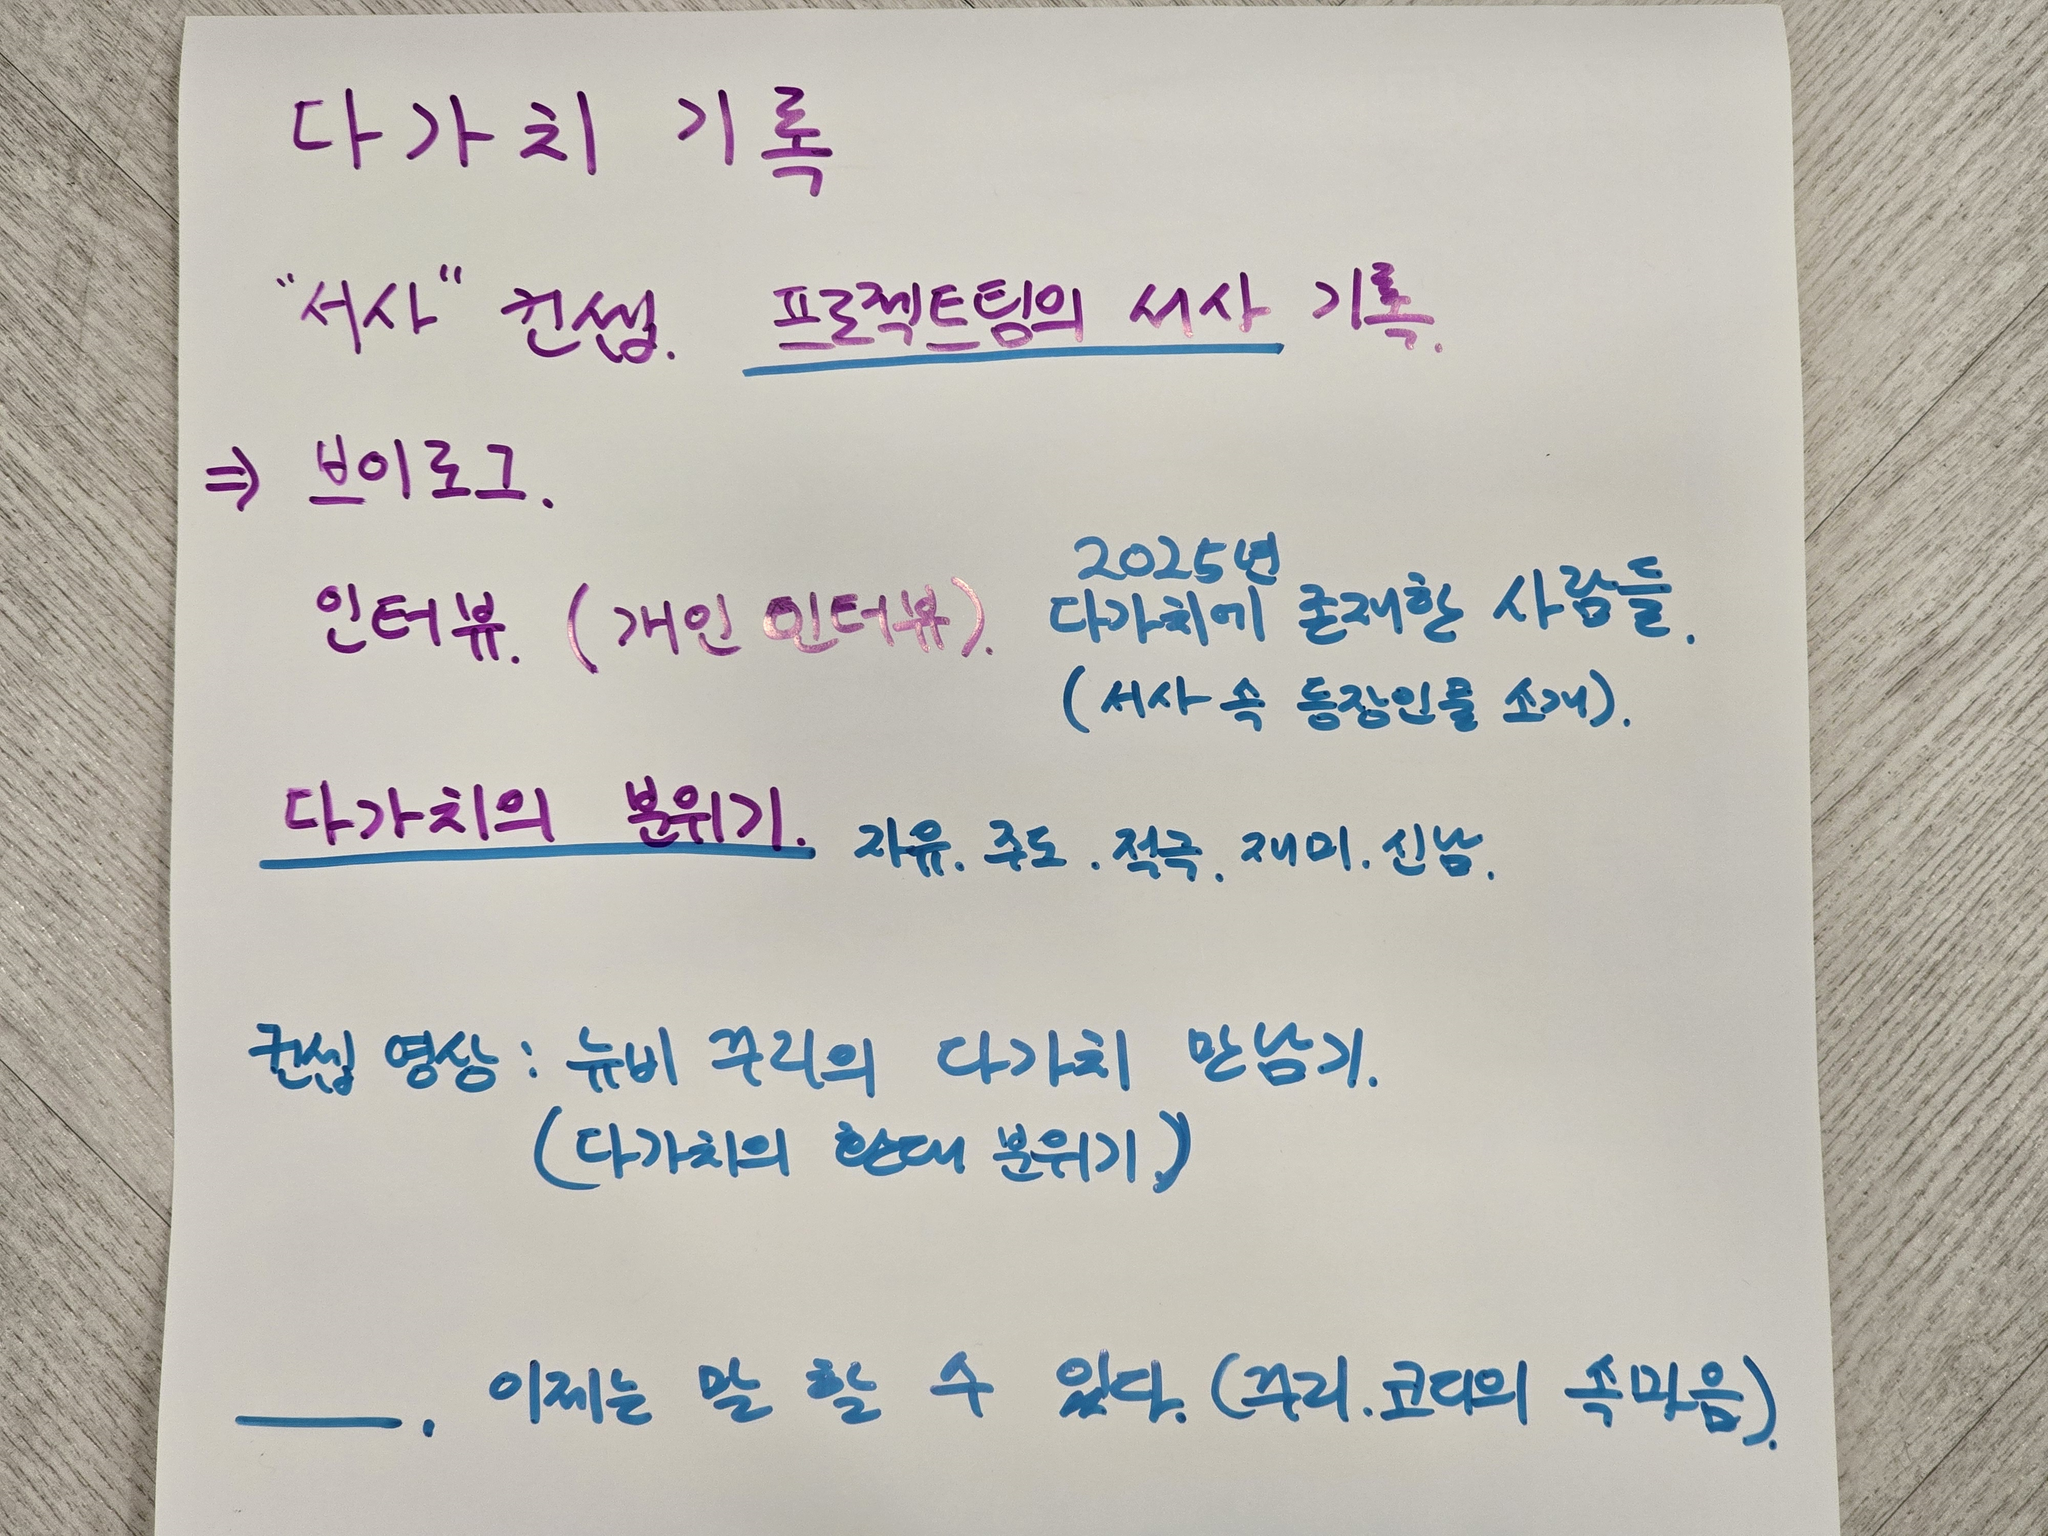 다가치 기록
"서사" 컨셉. 프로젝트팀의 서사 기록.
⇒ 브이로그.
인터뷰. (개인 인터뷰).
2025년
다가치에 존재한 사람들.
(서사 속 등장인물 소개).
다가치의 분위기. 자유. 주도. 적극. 재미. 신남.
컨셉 영상 : 뉴비 꾸리의 다가치 만남기.
(다가치의 환대 분위기.)
____. 이제는 말 할 수 있다. (꾸리. 코디의 속마음).